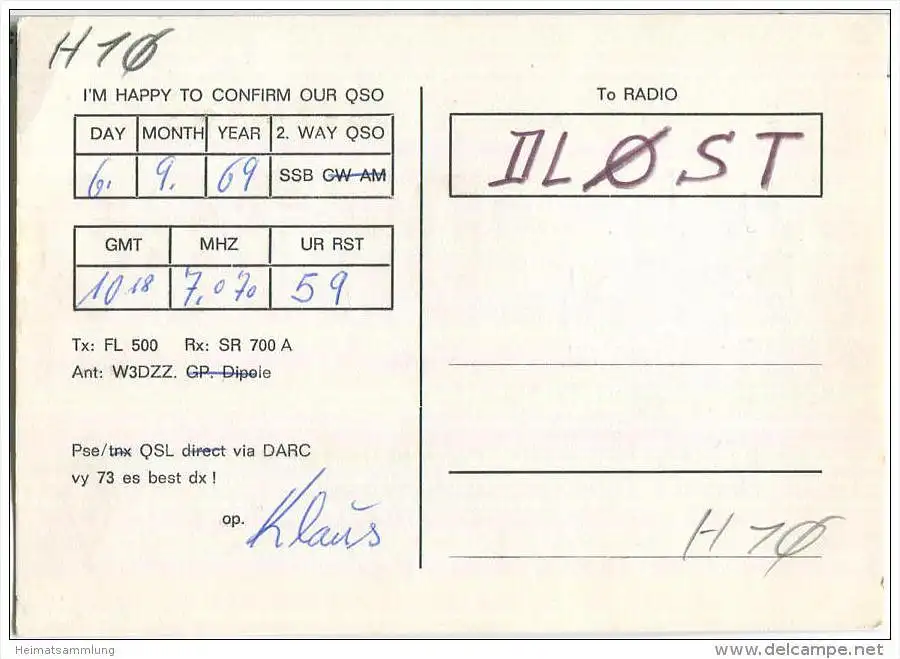 H 1Ø
I'M HAPPY TO CONFIRM OUR QSO
DAY MONTH YEAR 2. WAY QSO
6. 9. 69 SSB CW AM
GMT MHZ UR RST
10 18 7.070 59
Tx: FL 500 Rx: SR 700 A
Ant: W3DZZ. GP. Dipole
Pse/tnx QSL direct via DARC
vy 73 es best dx !
op. Klaus
To RADIO
DLØST
H 1Ø
Heimatsammlung
www.delcampe.net